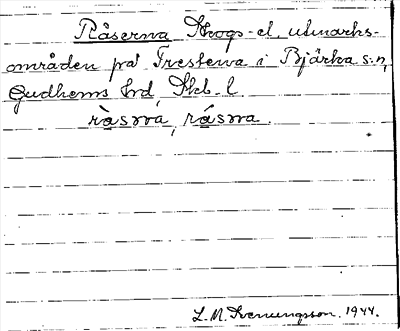 Råserna Skogs- el. utmarks-
områden på Trestena i Bjärka s:n,
Gudhems hd, Skb. l.
ràsᴐra, rásᴐra.
L. M. Svenungsson. 1944.